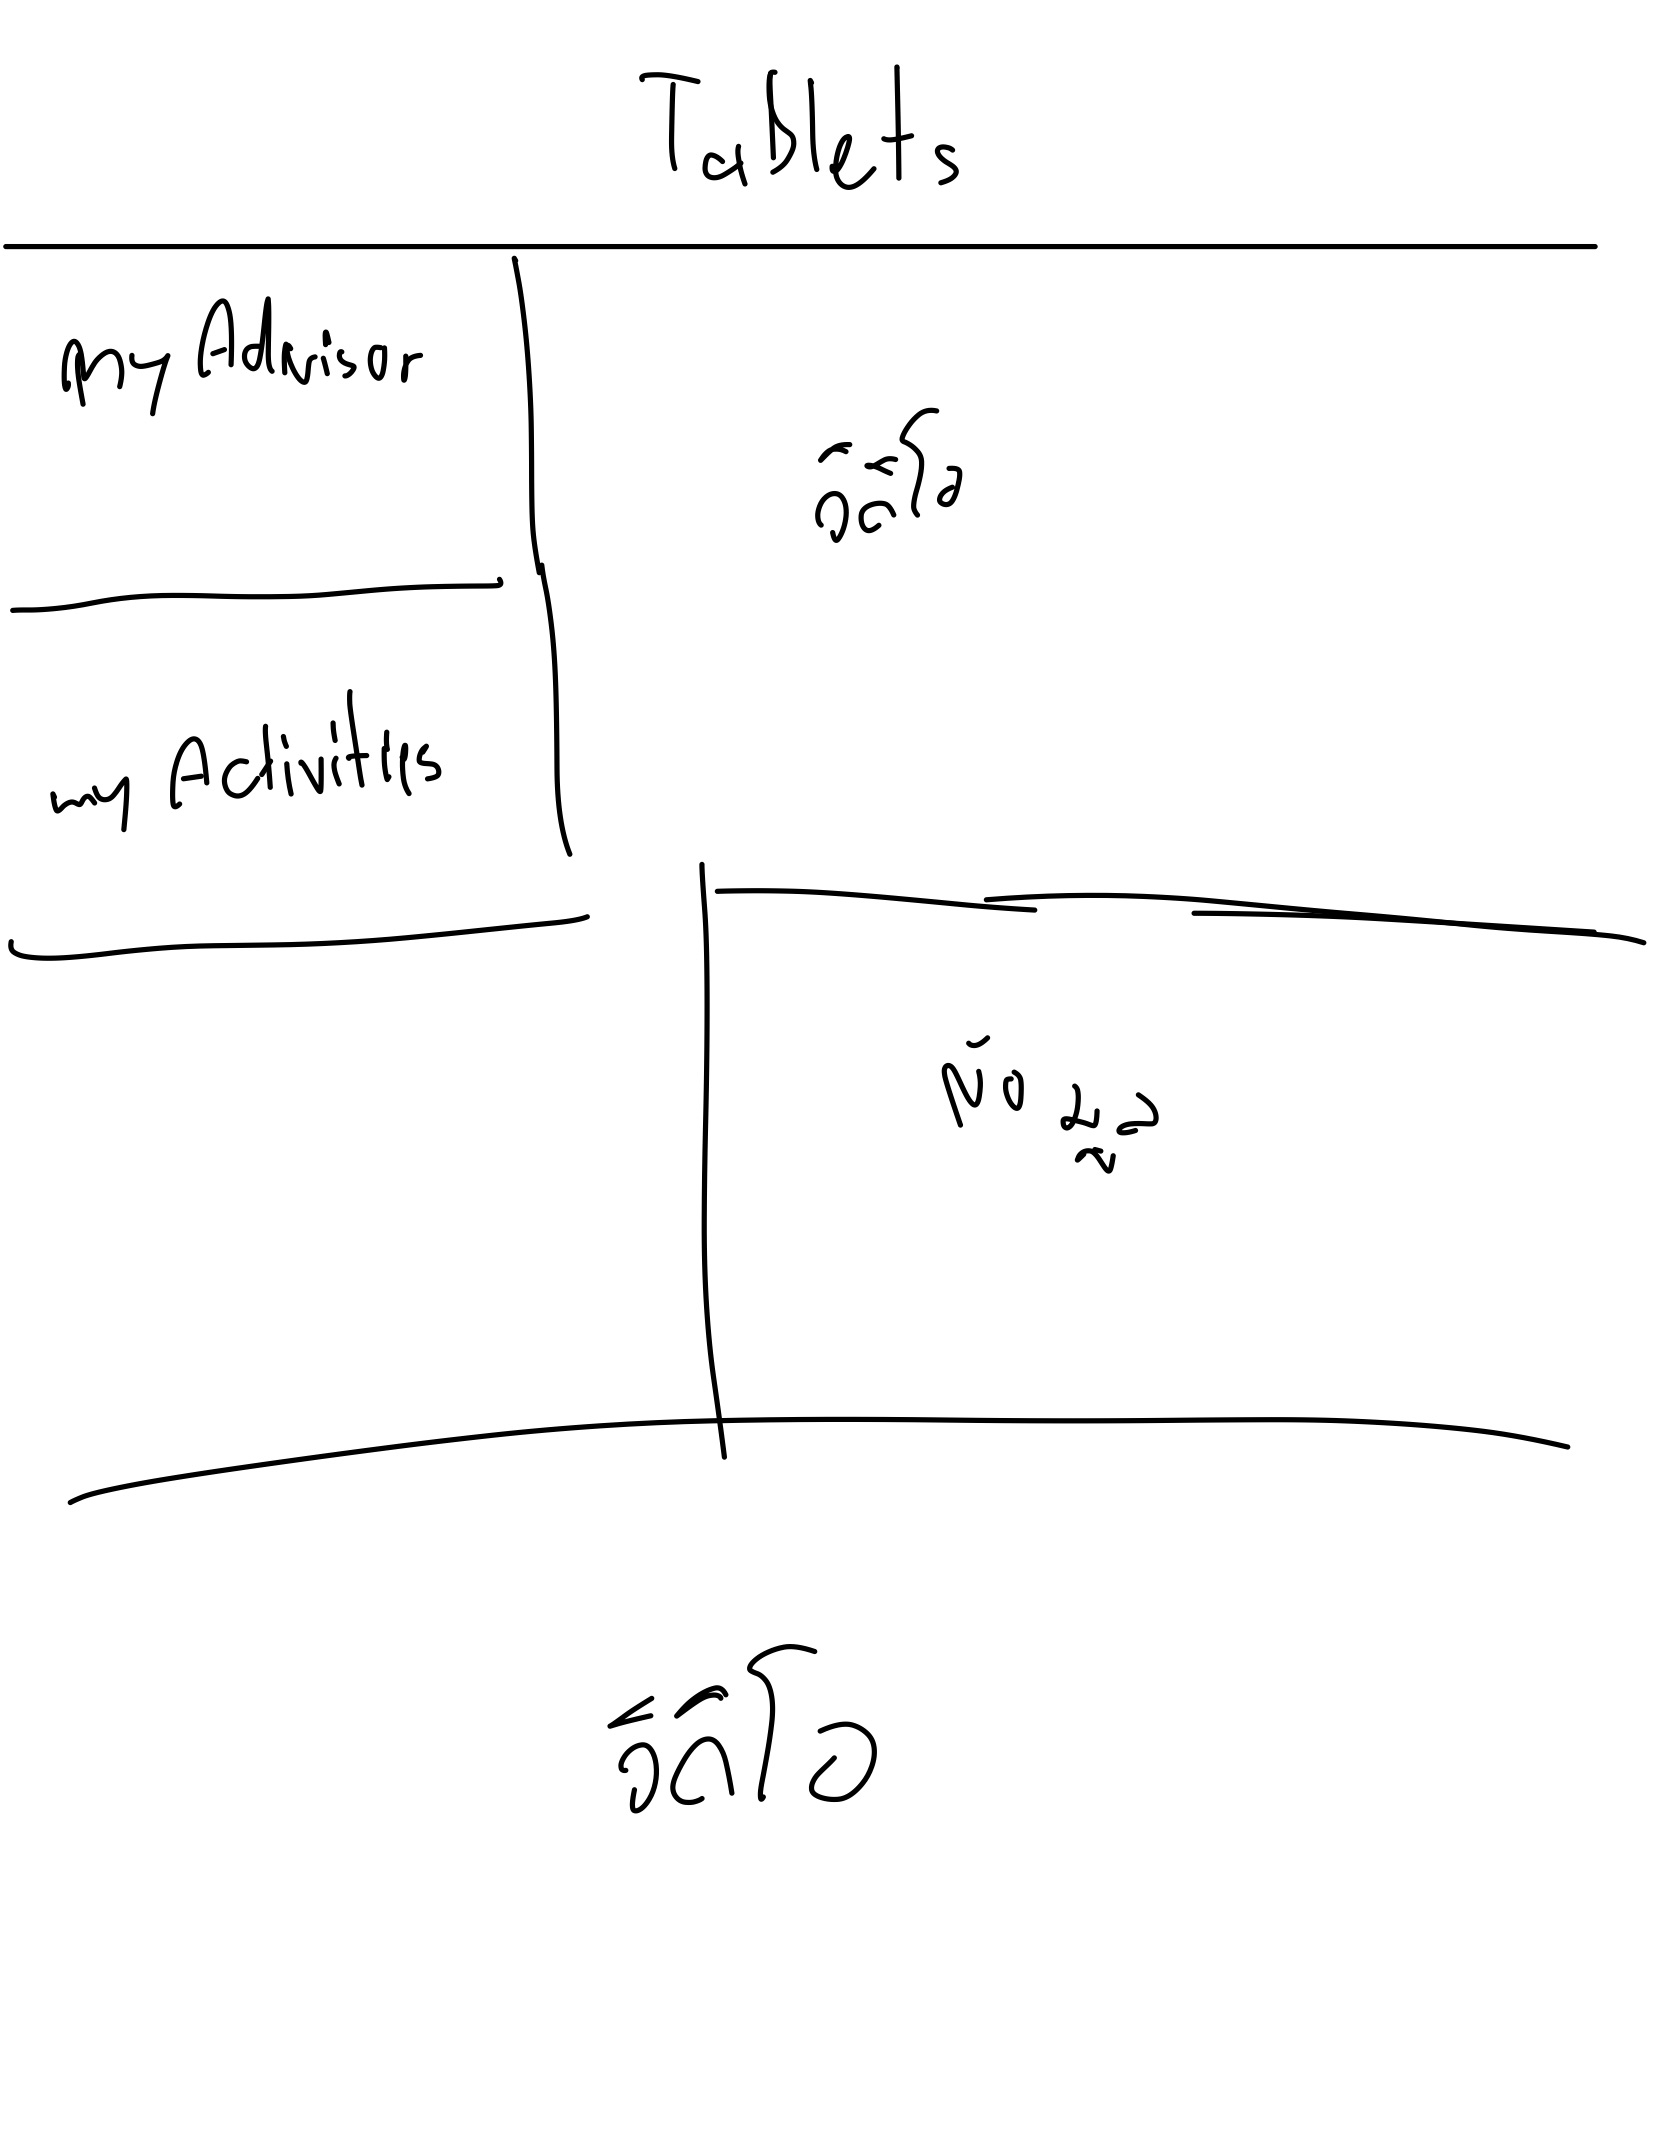 Tablets
my Advisor
วีดีโอ
my Activities
ข้อมูล
วีดีโอ